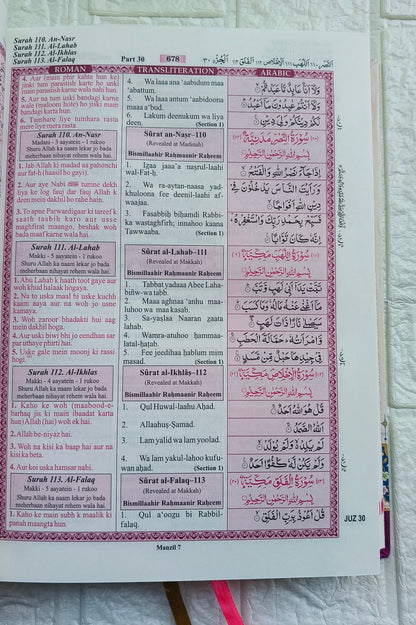 Surah 110. An-Nasr
Surah 111. Al-Lahab
Surah 112. Al-Ikhlas
Surah 113. Al-Falaq
Part 30
678
النصر ١١٠ اللهب ١١١ الاخلاص ١١٢ الفلق ١١٣ الجزء ٣٠
ROMAN
TRANSLITERATION
ARABIC
4. Aur (main phir kahta hun ke
jinki tum parastish karte ho unki
main parastish karne wala nahi hun.
5. Aur na tum uski bandagi karne
wale (maloom hote) ho jiski main
bandagi karta hun.
6. Tumhare liye tumhara rasta
mere liye mera rasta.
Surah 110. An-Nasr
Madani - 3 aayatein - 1 rukoo
Shuru Allah ka naam lekar jo bada
meherbaan nihayat rehem wala hai.
1. Jab Allah ki madad aa pahonchi
aur fat-h (haasil ho gayi).
2. Aur aye Nabi ﷺ tumne dekh
liya ke log fauj dar fauj Allah ke
deen mein dakhil ho rahe hain.
3. To apne Parwardigaar ki tareef k
saath tasbih karo aur usse
maghfirat maango, beshak woh
bada maaf karne wala hai.
Surah 111. Al-Lahab
Makki - 5 aayatein - 1 rukoo
Shuru Allah ka naam lekar jo bada
meherbaan nihayat rehem wala hai.
1. Abu Lahab k haath toot gaye aur
woh khud halaak ho gaya.
2. Na to uska maal hi uske kuchh
kaam aaya aur na woh jo usne
kamaya.
3. Woh zaroor bhadakti hui aag
mein dakhil hoga.
4. Aur uski biwi bhi jo eendhan sar
par uthaye phirti hai.
5. Uske gale mein moonj ki rassi
hogi.
Surah 112. Al-Ikhlas
Makki - 4 aayatein - 1 rukoo
Shuru Allah ka naam lekar jo bada
meherbaan nihayat rehem wala hai.
1. Kaho ke woh (maabood-e-
barhaq jis ki main ibaadat karta
hun) Allah (hai) woh ek hai.
2. Allah be-niyaz hai.
3. Woh na kisi ka baap hai aur na
kisi ka beta.
4. Aur koi uska hamsar nahi.
Surah 113. Al-Falaq
Makki - 5 aayatein - 1 rukoo
Shuru Allah ka naam lekar jo bada
meherbaan nihayat rehem wala hai.
1. Kaho ke main subh k maalik ki
panah maangta hun.
4. Wa laaa ana 'aabidum maa
'abattum.
5. Wa laaa antum 'aabidoona
maaa a'bud.
6. Lakum deenukum wa liya
deen. (Section 1)
Sûrat an-Nasr–110
(Revealed at Madinah)
Bismillaahir Rahmaanir Raheem
1. Izaa jaaa'a nasrul-laahi
wal-Fat-h.
2. Wa ra-aytan-naasa yad-
khuloona fee deenil-laahi af-
waajaa.
3. Fasabbih bihamdi Rabbi-
ka wastaghfirh; innahoo kaana
Tawwaaba. (Section 1)
Sûrat al-Lahab–111
(Revealed at Makkah)
Bismillaahir Rahmaanir Raheem
1. Tabbat yadaaa Abee Laha-
biñw-wa tabb.
2. Maaa aghnaa 'anhu maa-
luhoo wa maa kasab.
3. Sa-yaşlaa Naaran zaata
lahab.
4. Wamra-atuhoo hammaa-
latal-hatab.
5. Fee jeedihaa hablum mim
masad. (Section 1)
Sûrat al-Ikhlâs–112
(Revealed at Makkah)
Bismillaahir Rahmaanir Raheem
1. Qul Huwal-laahu Ahad.
2. Allaahuş-Şamad.
3. Lam yalid wa lam yoolad.
4. Wa lam yakul-lahoo kufu-
wan ahad. (Section 1)
Sûrat al-Falaq–113
(Revealed at Makkah)
Bismillaahir Rahmaanir Raheem
1. Qul a'oogu bi Rabbil-
falaq.
وَلَا أَنَا عَابِدٌ مَّا عَبَدْتُّمْ ۝
وَلَا أَنْتُمْ عٰبِدُونَ مَا أَعْبُدُ ۝
لَكُمْ دِينُكُمْ وَلِيَ دِينِ ۝
سُورَةُ النَّصْرِ مَدَنِيَّةٌ
بِسْمِ اللهِ الرَّحْمٰنِ الرَّحِيْمِ
إِذَا جَاءَ نَصْرُ اللهِ وَالْفَتْحُ ۝
وَرَأَيْتَ النَّاسَ يَدْخُلُونَ فِي
دِينِ اللهِ أَفْوَاجًا ۝
فَسَبِّحْ بِحَمْدِ رَبِّكَ وَاسْتَغْفِرْهُ
إِنَّهُ كَانَ تَوَّابًا ۝
سُورَةُ اللَّهَبِ مَكِّيَّةٌ
بِسْمِ اللهِ الرَّحْمٰنِ الرَّحِيْمِ
تَبَّتْ يَدَا أَبِي لَهَبٍ وَّتَبَّ ۝
مَا أَغْنٰى عَنْهُ مَالُهُ وَمَا كَسَبَ ۝
سَيَصْلٰى نَارًا ذَاتَ لَهَبٍ ۝
وَّامْرَأَتُهُ حَمَّالَةَ الْحَطَبِ ۝
فِي جِيدِهَا حَبْلٌ مِّنْ مَّسَدٍ ۝
سُورَةُ الْإِخْلَاصِ مَكِّيَّةٌ
بِسْمِ اللهِ الرَّحْمٰنِ الرَّحِيْمِ
قُلْ هُوَ اللهُ أَحَدٌ ۝
اللهُ الصَّمَدُ ۝
لَمْ يَلِدْ وَلَمْ يُولَدْ ۝
وَلَمْ يَكُنْ لَّهُ كُفُوًا أَحَدٌ ۝
سُورَةُ الْفَلَقِ مَكِّيَّةٌ
بِسْمِ اللهِ الرَّحْمٰنِ الرَّحِيْمِ
قُلْ أَعُوذُ بِرَبِّ الْفَلَقِ ۝
JUZ 30
Manzil 7